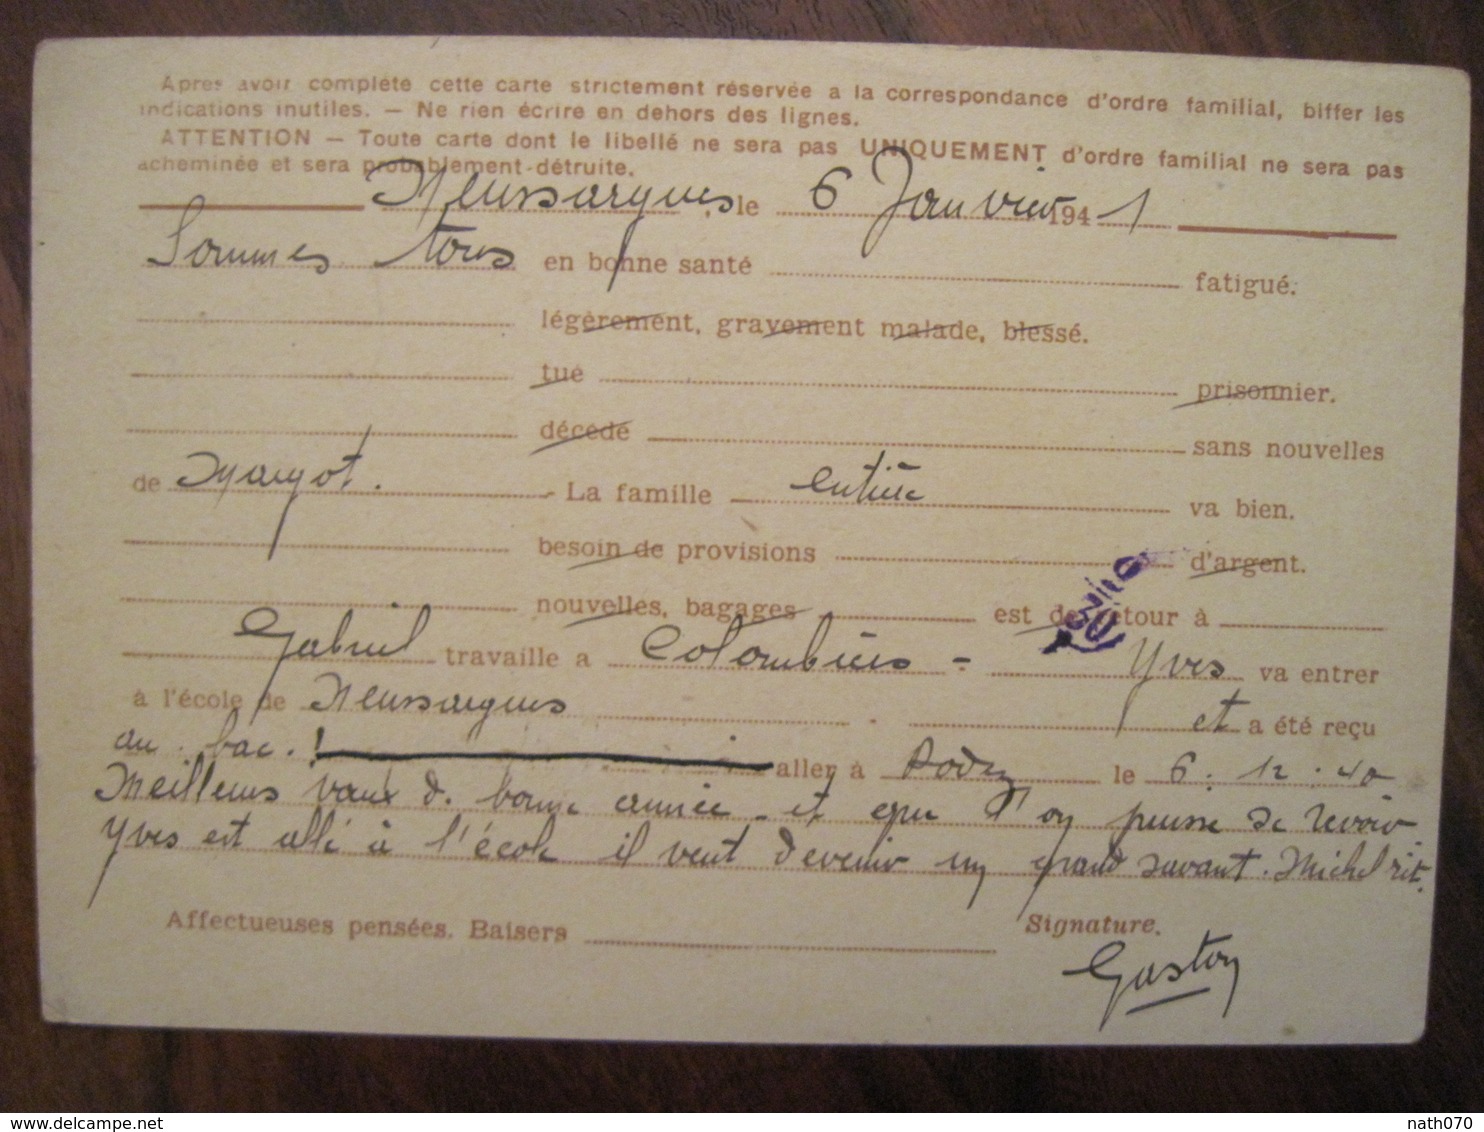 Après avoir complété cette carte strictement réservée a la correspondance d'ordre familial, biffer les
indications inutiles. — Ne rien écrire en dehors des lignes.
ATTENTION — Toute carte dont le libellé ne sera pas UNIQUEMENT d'ordre familial ne sera pas
acheminée et sera probablement détruite.
Neussargues, le 6 Janvier 1941
Sommes tous en bonne santé fatigué.
légèrement, gravement malade, blessé.
tué prisonnier.
décédé sans nouvelles
de Margot. - La famille entière va bien.
besoin de provisions d'argent.
nouvelles, bagages est de retour à
Gabriel travaille a Colombiès - Yves va entrer
à l'école de Neussargues et a été reçu
au bac. ! aller à Rodez le 6.12.40
Meilleurs vœux d. bonne année. et que l'on puisse se revoir
Yves est allé à l'école il veut devenir un grand savant. Michel rit.
Affectueuses pensées. Baisers Signature.
Gaston
delcampe.net
nath070